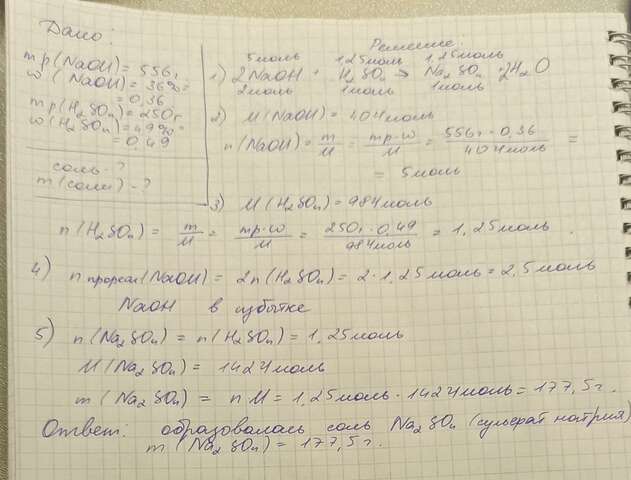 Дано:
mр(NaOH)=556г
w(NaOH)=36%=
=0,36
mр(H₂SO₄)=250г
w(H₂SO₄)=49%=
=0,49
соль-?
m(соли)-?
Решение:
5моль 1,25моль 1,25моль
1) 2NaOH + H₂SO₄ → Na₂SO₄ + 2H₂O
2моль 1моль 1моль
2) M(NaOH)=40г/моль
n(NaOH)= m/M = mр·w/M = 556г·0,36/40г/моль =
= 5моль
3) M(H₂SO₄)=98г/моль
n(H₂SO₄) = m/M = mр·w/M = 250г·0,49/98г/моль = 1,25моль.
4) n прореаг(NaOH) = 2n(H₂SO₄)= 2·1,25моль=2,5моль
NaOH в избытке
5) n(Na₂SO₄) = n(H₂SO₄) = 1,25моль
M(Na₂SO₄) = 142г/моль
m(Na₂SO₄) = n·M = 1,25моль·142г/моль=177,5г.
Ответ: образовалась соль Na₂SO₄ (сульфат натрия)
m(Na₂SO₄)=177,5г.